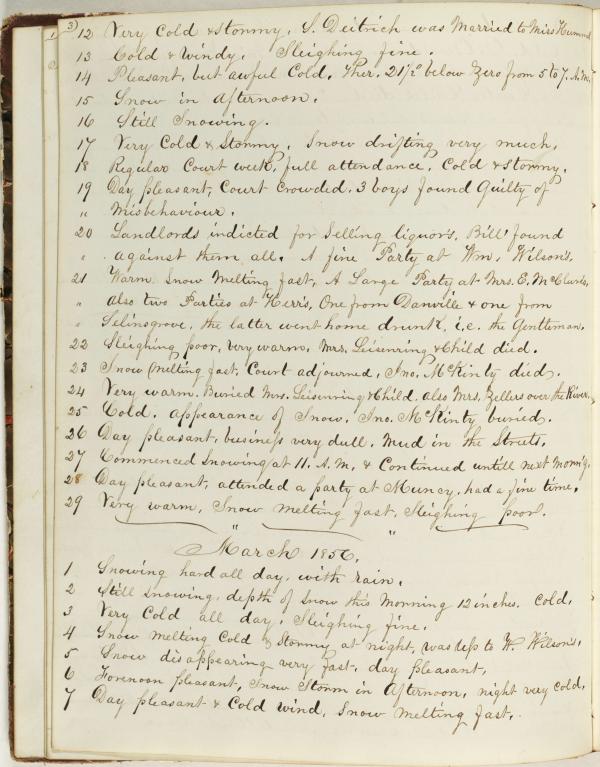 3)
12 Very Cold & Stormy, S. Deitrich was Married to Miss Hummel
13 Cold & Windy, Sleighing fine.
14 Pleasant, but awful Cold, Ther. 21½° below Zero from 5 to 7. A.M.
15 Snow in Afternoon.
16 Still Snowing.
17 Very Cold & Stormy, Snow drifting very much,
18 Regular Court week, full attendance, Cold & Stormy,
19 Day pleasant, Court Crowded, 3 boys found Guilty of
" Misbehaviour,
20 Landlords indicted for Selling liquors, Bill found
" against them all. A fine Party at Wm. Wilson's,
21 Warm Snow Melting fast, A Large Party at Mrs. E. McClures,
" also two Parties at Herrs, One from Danville & one from
" Selinsgrove, the latter went home drunk, i,e. the Gentleman,
22 Sleighing poor, very warm, Mrs. Leisenring & Child died.
23 Snow Melting fast, Court adjourned, Jno. McKinty died,
24 Very warm, Buried Mrs. Leisenring & Child, also Mrs. Zellers over the River,
25 Cold, appearance of Snow, Jno. McKinty buried,
26 Day pleasant, business very dull, Mud in the Streets,
27 Commenced Snowing at 11. A.M. & Continued untill next Morning,
28 Day pleasant, attended a party at Muncy, had a fine time,
29 Very warm, Snow Melting fast, Sleighing poor.
" "
March 1856,
1 Snowing hard all day, with rain,
2 Still Snowing, depth of Snow this Morning 12 inches. Cold,
3 Very Cold all day, Sleighing fine,
4 Snow Melting Cold & Stormy at night, was to W. Wilson's,
5 Snow disappearing very fast, day pleasant,
6 Forenoon pleasant, Snow Storm in Afternoon, night very Cold,
7 Day pleasant & Cold wind, Snow Melting fast,